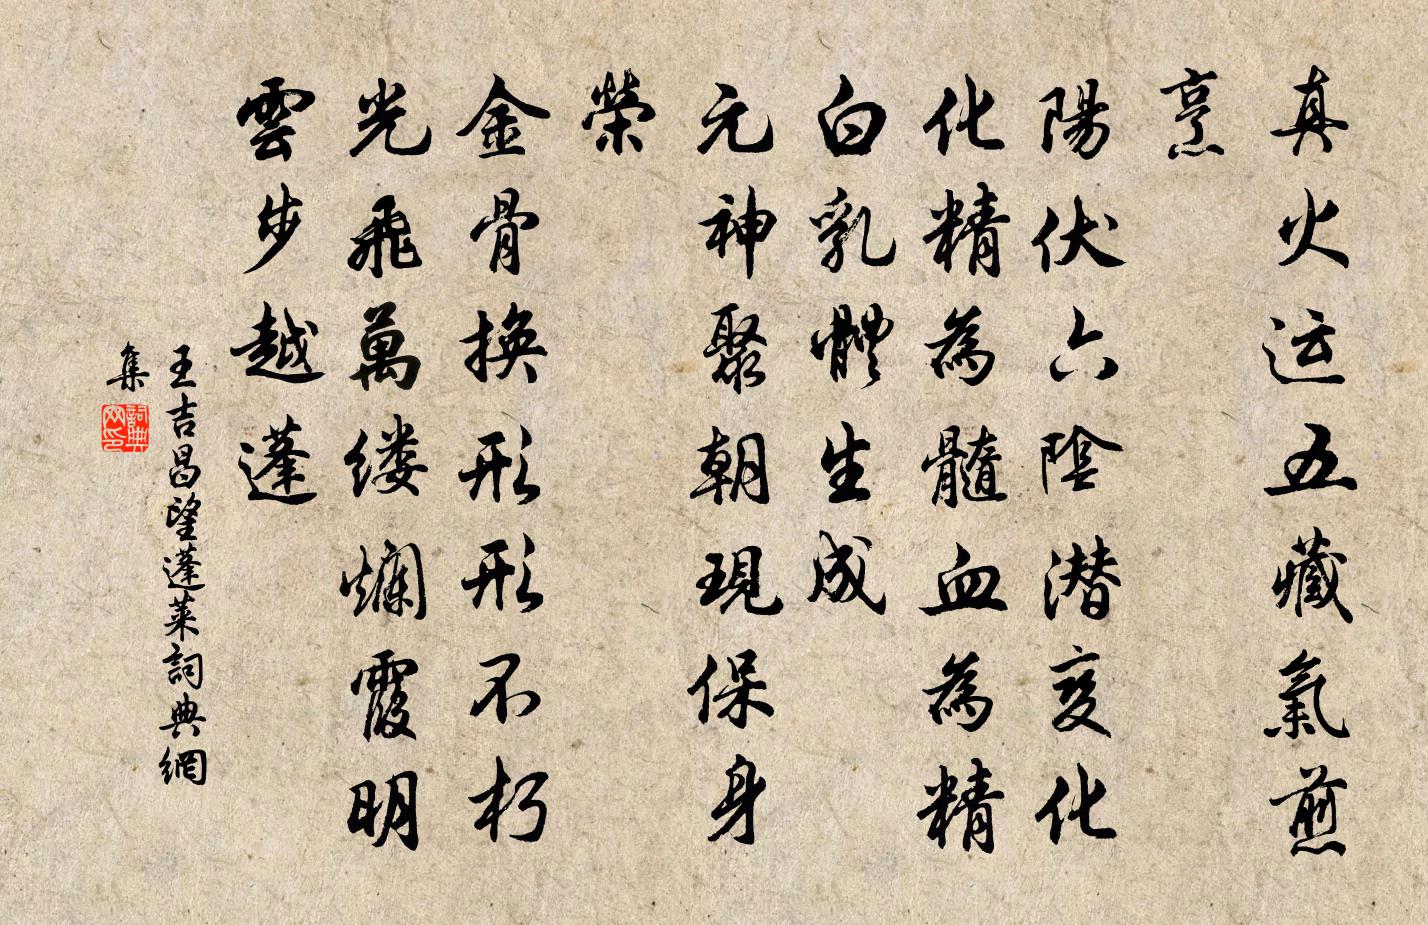 真火运五藏氣煎
烹
陽伏六陰潜变化
化精為髓血為精
白乳體生成
元神聚朝現保身
榮
金骨換形形不朽
光飛萬缕爛霞明
雲步越蓬
王吉昌望蓬莱詞典網
集
詞典网印